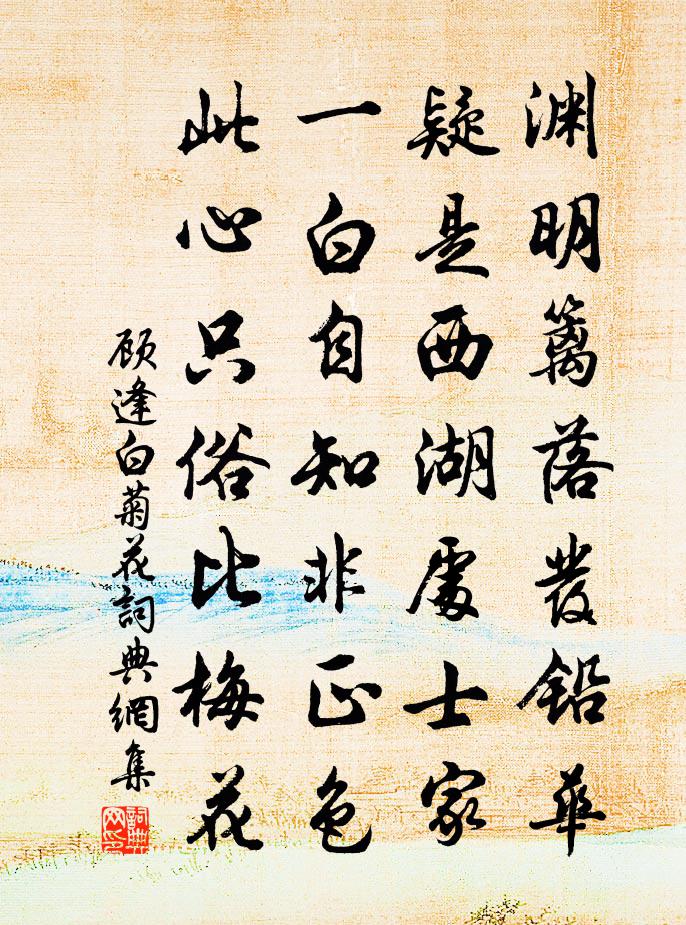 渊明篱落发铅华
疑是西湖處士家
一白自知非正色
此心只俗比梅花
顾逢白菊花詞典網集
詞典网印